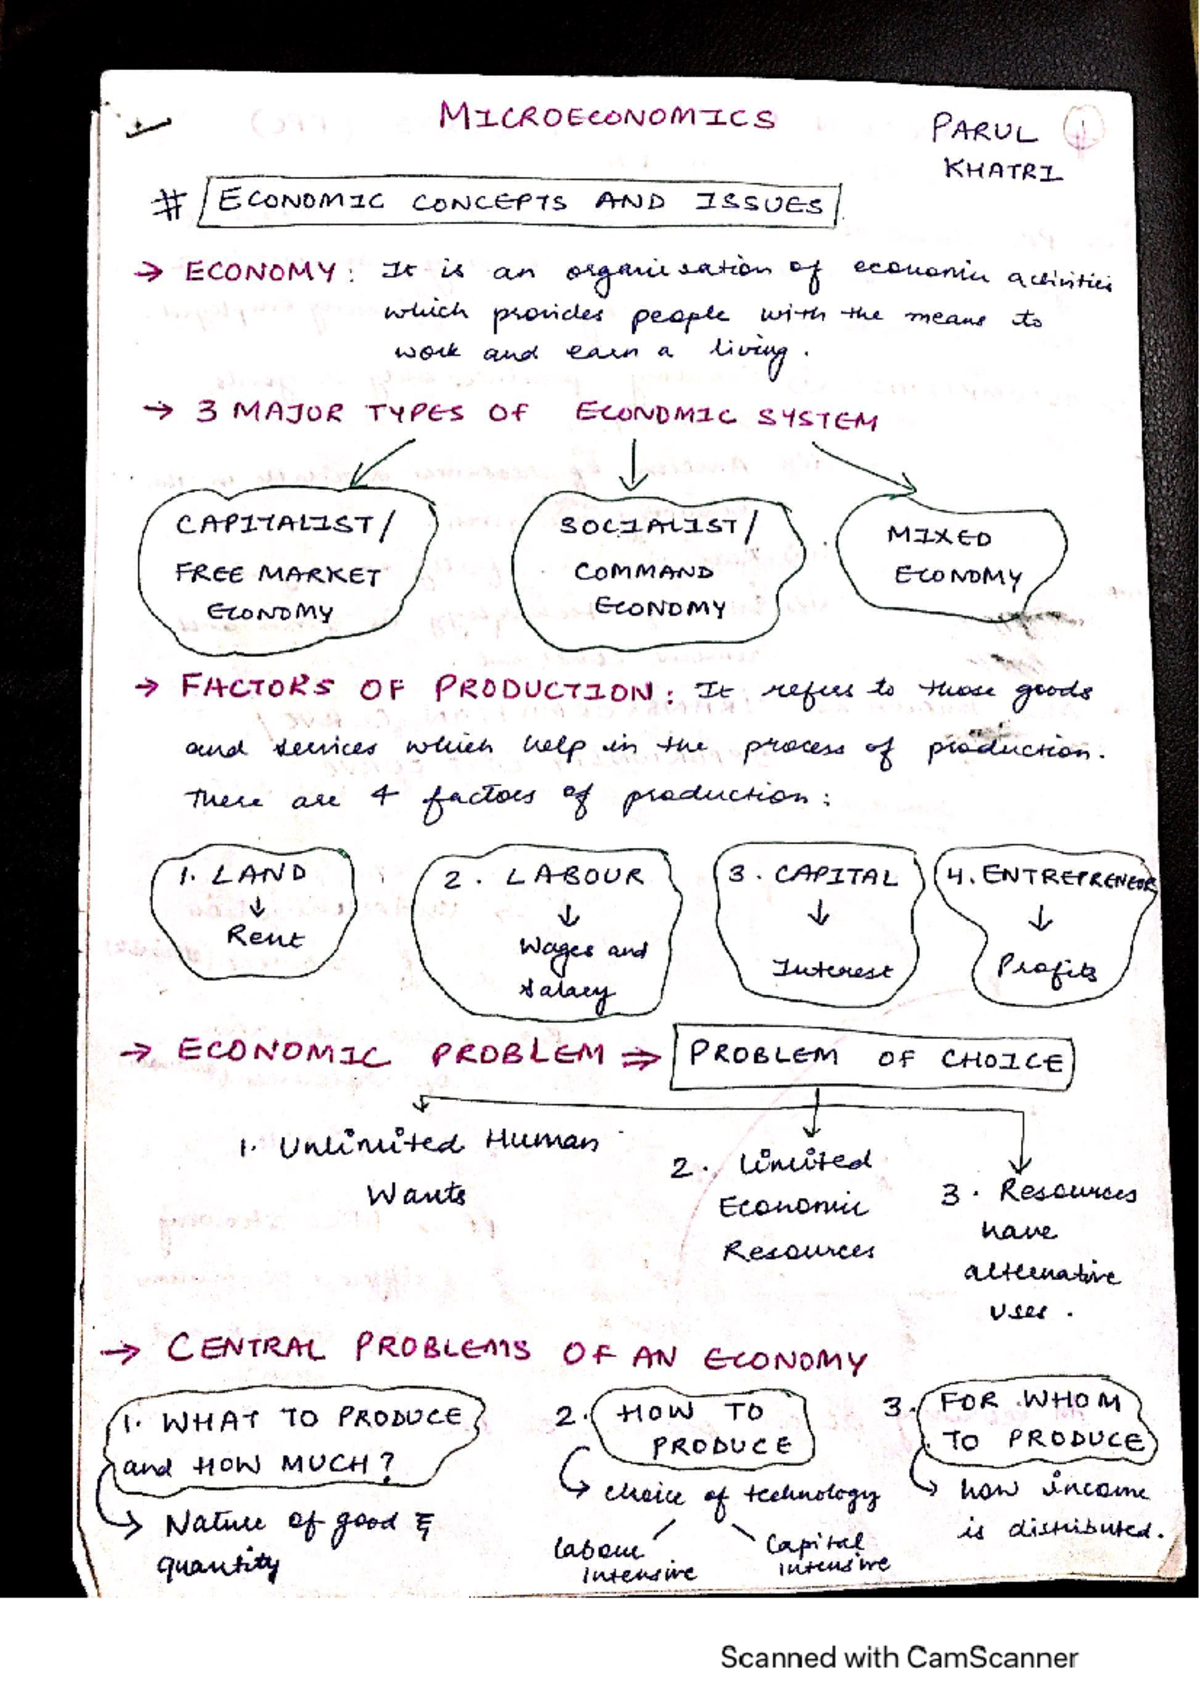 MICROECONOMICS
PARUL 1
KHATRI
# ECONOMIC CONCEPTS AND ISSUES
→ ECONOMY: It is an organisation of economic activities
which provides people with the means to
work and earn a living.
→ 3 MAJOR TYPES OF ECONOMIC SYSTEM
CAPITALIST/
FREE MARKET
ECONOMY
SOCIALIST/
COMMAND
ECONOMY
MIXED
ECONOMY
→ FACTORS OF PRODUCTION: It refers to those goods
and services which help in the process of production.
There are 4 factors of production:
1. LAND
↓
Rent
2. LABOUR
↓
Wages and
Salary
3. CAPITAL
↓
Interest
4. ENTREPRENEUR
↓
Profits
→ ECONOMIC PROBLEM ⇒ PROBLEM OF CHOICE
1. Unlimited Human
Wants
2. Limited
Economic
Resources
3. Resources
have
alternative
uses.
→ CENTRAL PROBLEMS OF AN ECONOMY
1. WHAT TO PRODUCE
and HOW MUCH?
Nature of good &
quantity
2. HOW TO
PRODUCE
choice of technology
labour
intensive
Capital
intensive
3. FOR WHOM
TO PRODUCE
how income
is distributed.
Scanned with CamScanner